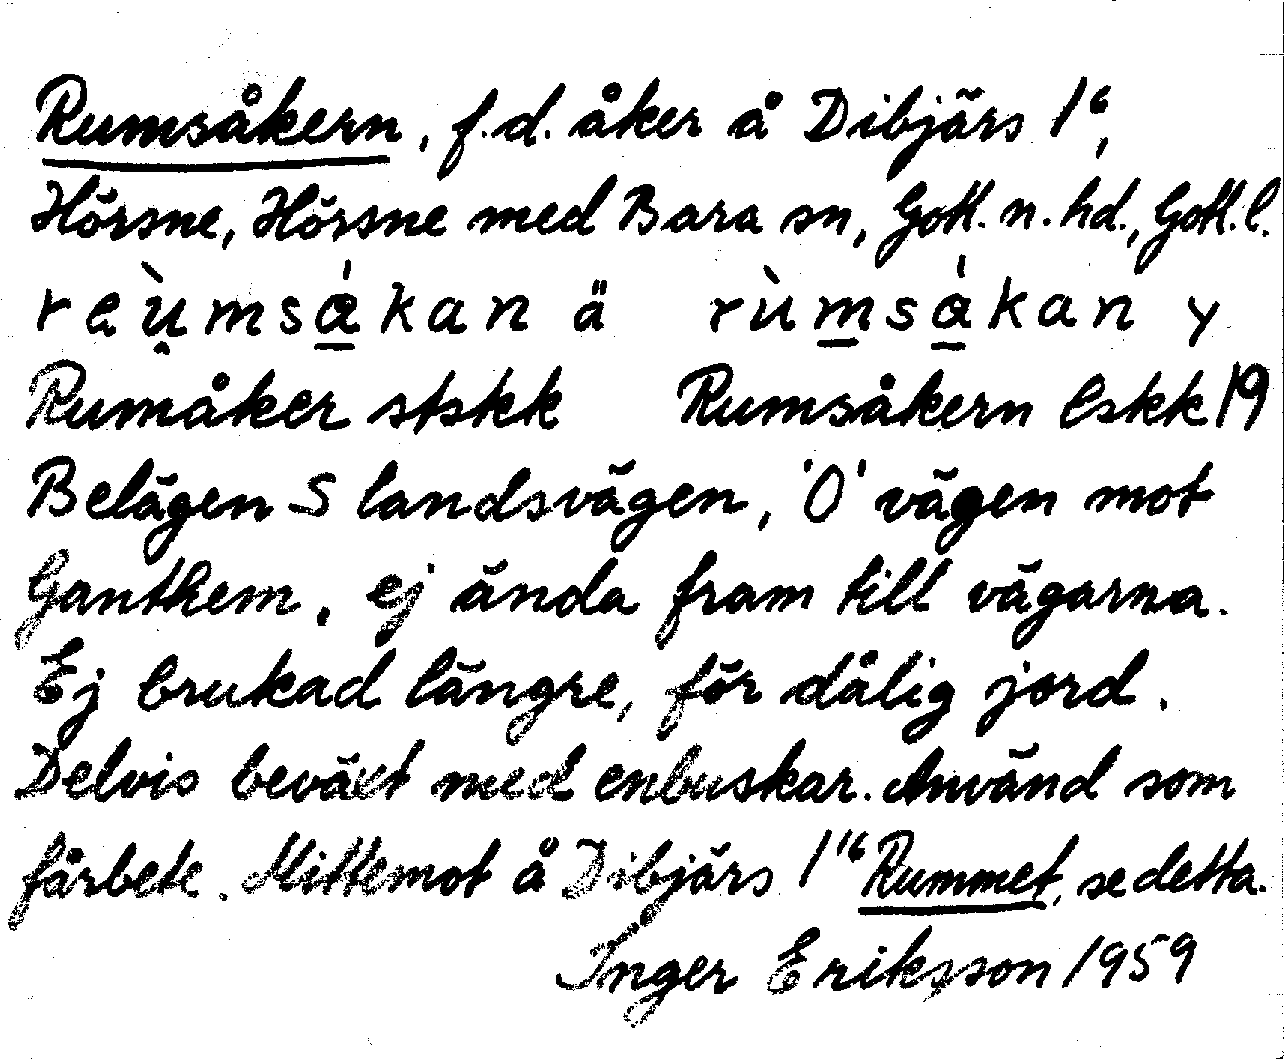 Rumsåkern, f.d. åker å Dibjärs 1⁶,
Hörsne, Hörsne med Bara sn, Gotl. n. hd., Gotl. l.
reùmsǻkan ä rùmsákan y
Rumåker stskk Rumsåkern lskk 19
Belägen S landsvägen, 'O' vägen mot
Ganthem, ej ända fram till vägarna.
Ej brukad längre, för dålig jord.
Delvis beväxt med enbuskar. Använd som
fårbete. Mittemot å Dibjärs 1¹⁶ Rummet, se detta.
Inger Eriksson 1959